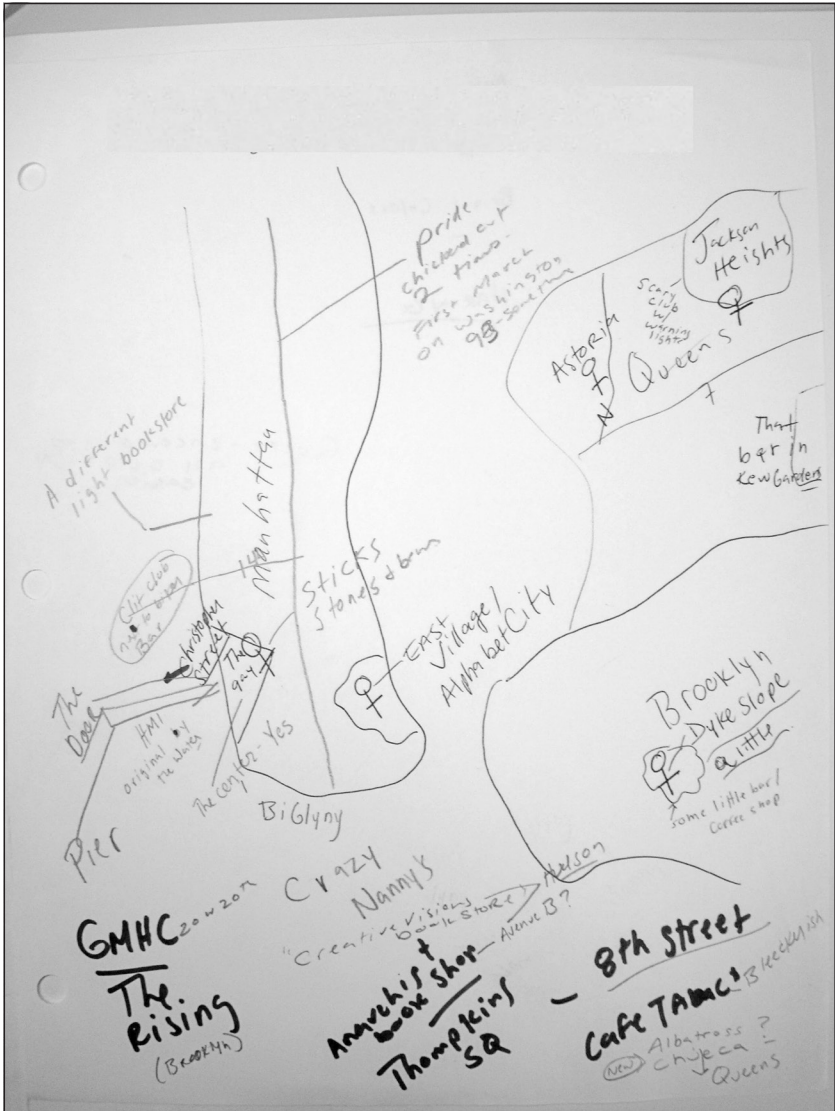 pride
chickend out
2 times.
First march
on washington
98-something
Jackson
Heights
Scary
club
w/
warning
lights
Astoria
N
Queens
7
That
bar in
Kew Gardens
A different
light bookstore
Manhattan
14th
Clit club
next to
Bar
Christopher
Street
The
gay
Sticks
Stones +
East
Village/
Alphabet City
The
Dock
HMI
original by
the water
The center - Yes
Pier
BiGlyny
Brooklyn
Dyke Slope
a little
some little bar/
coffee shop
Crazy
Nanny's
"Creative visions
bookstore"
Hudson
GMHC 20 w 20th
The
Rising
(Brooklyn)
Anarchist
book shop - Avenue B?
Thompkins
SQ
- 8th street
Cafe Tabac' Bleeckyish
(New) Albatross ?
Chueca -
Queens